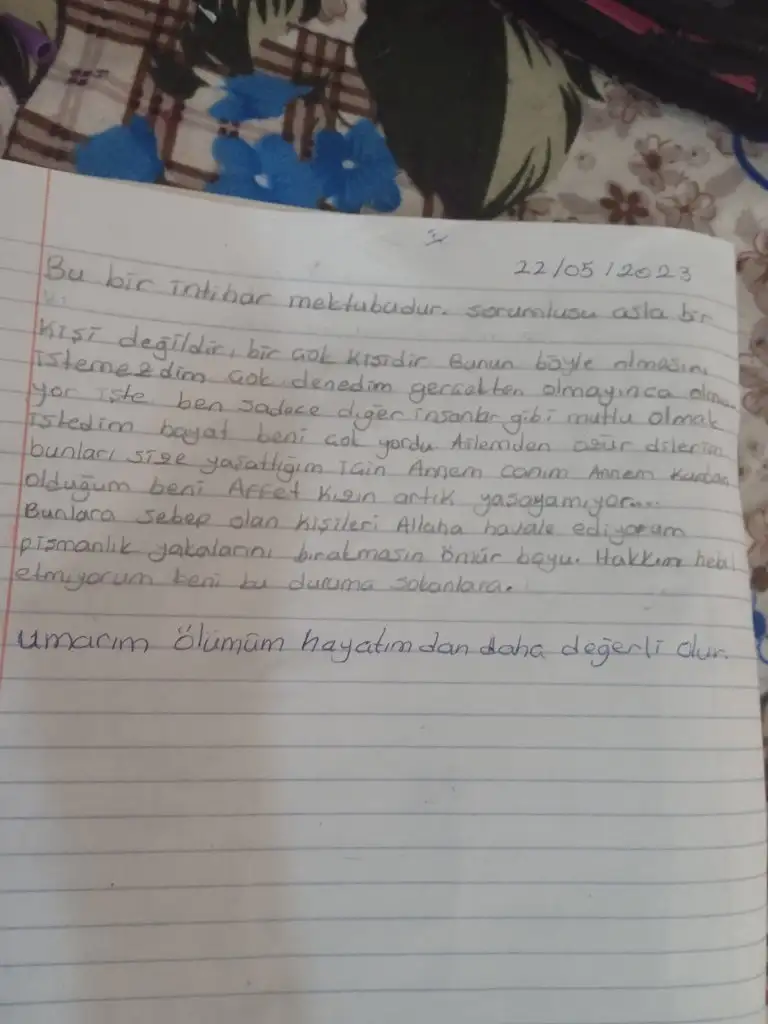 22/05/2023
Bu bir intihar mektubudur. sorumlusu asla bir
kişi değildir, bir çok kişidir Bunun böyle olmasını
istemezdim çok denedim gerçekten olmayınca
yor işte ben sadece diğer insanlar gibi mutlu olmak
istedim hayat beni çok yordu Ailemden özür dilerim
bunları size yaşattığım için Annem canım Annem
olduğum beni Affet kızın artık yaşayamıyor....
Bunlara sebep olan kişileri Allaha havale ediyorum
pişmanlık yakalarını bırakmasın ömür boyu. Hakkım helal
etmiyorum beni bu duruma sokanlara.
umarım ölümüm hayatımdan daha değerli olur.